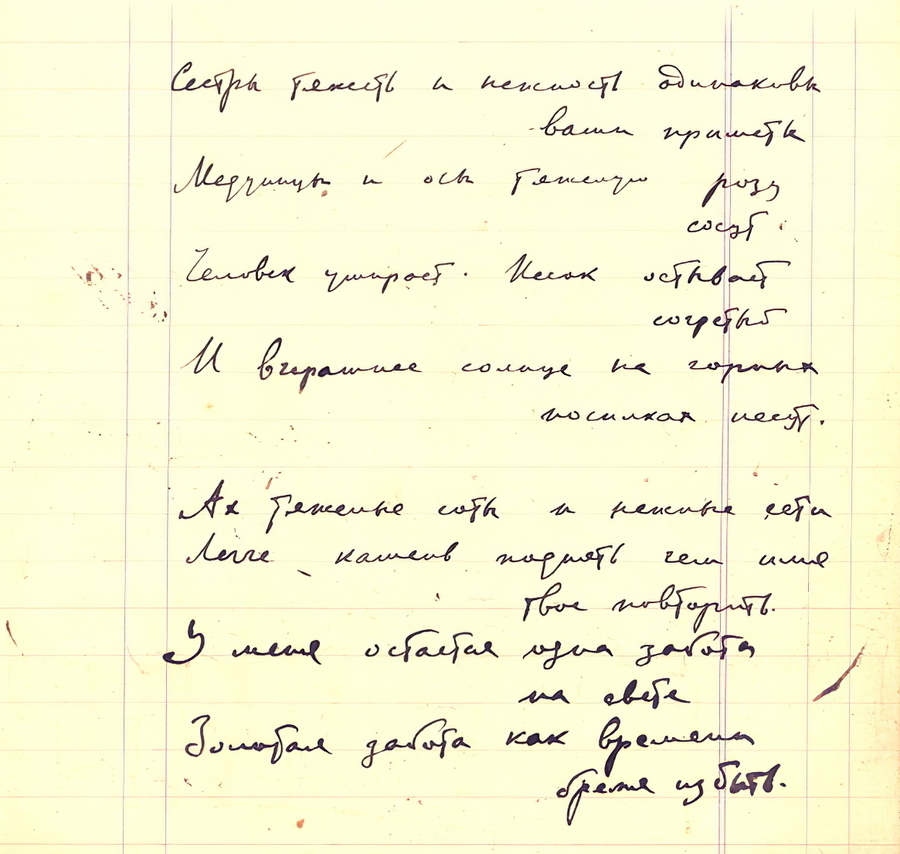 Сестры тяжесть и нежность одинаковы
ваши приметы
Медуницы и осы тяжелую розу
сосут
Человек умирает. Песок остывает
согретый
И вчерашнее солнце на горных
носилках несут.
Ах тяжелые соты и нежные сети
Легче камень поднять чем имя
твое повторить.
У меня остается одна забота
на свете
Золотая забота как времени
бремя избыть.